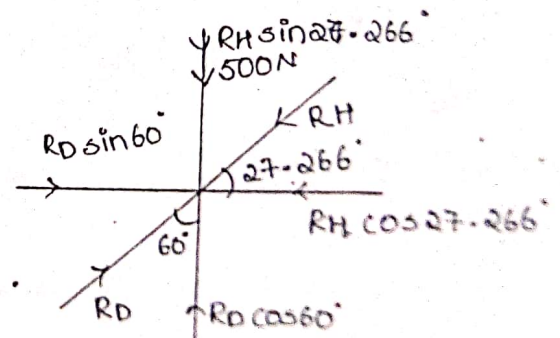 RH sin27.266°
500N
RH
RD sin60°
27.266°
RH cos27.266°
60°
RD
RD cos60°